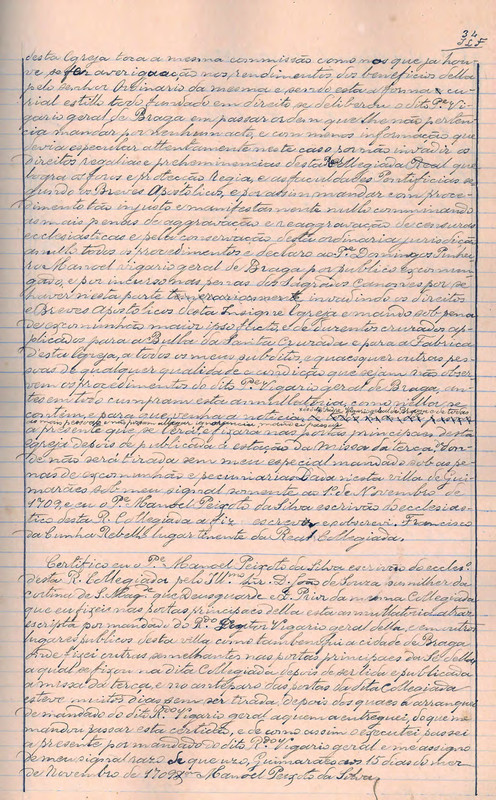 34
desta Igreja toca a mesma commissão como nos que ja hou-
ve se fez averiguação nos rendimentos dos beneficios della
pelo Senhor Ordinario da mesma e sendo esta a forma cu-
rial estillo todo fundado em direito se deliberou o dito Pe Vi-
gario geral de Braga em passar ordem que lhe não perten-
cia mandar por nenhum acto, e com menos informação que
devia especular attentamente neste caso por não invadir os
direitos regalias e prehominencias desta Collegiada Real que
logra os foros e protecção Regia, e as faculdades Pontificias se-
gundo os Breves Apostolicos, e por assim mandar com proce-
dimento tão injusto e manifestamente nullo comminando
as mais penas de aggravação e reaggravação de censuras
ecclesiasticas e pela conservação desta ordinaria jurisdição
annullo todos os procedimentos e declaro ao Pe Domingos Pinhei-
ro Manoel Vigario geral de Braga por publico excomun-
gado, e por incurso nas penas dos Sagrados Canones por se
haver nesta parte temerariamente invadindo os direitos
e Breves Apostolicos desta Insigne Igreja e mando sob pena
de excomunhão maior ipso facto, e de duzentos cruzados ap-
plicados para a Bulla da Santa Cruzada e para a Fabrica
desta Igreja, a todos os meus subditos, e quaesquer outras pes-
soas de qualquer qualidade e condição que sejam não obser-
vem os procedimentos do dito Pe Vigario geral de Braga, an-
tes em tudo cumpram esta annullatoria, como nella se
contem, e para que venha a noticia
as mais pessoas e não possam allegar ignorancia mandei passar
a presente que se lerá e fixará nas portas principaes desta
igreja depois de publicada á estação da Missa da terça, don-
de não será tirada sem meu especial mandado sob as pe-
nas de excomunhão e pecuniarias. Dada nesta villa de Gui-
marães sob meu signal somente ao 1º de Novembro de
1709, e eu o Pe Manoel Peixoto da Silva escrivão do ecclesias-
tico desta R. Collegiada a fiz escrever e subscrevi. Francisco
da Cunha Rebello lugar tenente da Real Collegiada.
Certifico eu o Pe Manoel Peixoto da Silva escrivão do eccleso
desta R. Collegiada pelo Illmo Snr. D. João de Souza sumilher da
cortina de S. Magte que Deus guarde e D. Prior da mesma Collegiada
que eu fixei nas portas principaes della esta annullatoria atraz
escripta por mandado do Rdo Doutor Vigario geral della, e em outros
lugares publicos desta villa como tambem fui a cidade de Braga
onde fixei outras semelhantes nas portas principaes da Sé della
a qual se fixou na dita Collegiada depois de ser lida e publicada
á missa da terça, e no anteparo das portas da dita Collegiada
esteve muitos dias sem ser tirada, depois dos quaes a arranquei
de mandado do dito Rdo Vigario geral a quem a entreguei, do que me
mandou passar esta certidão, e de como assim o executei passei
a presente por mandado do dito Rdo Vigario geral e me assigno
de meu signal razo de que uzo, Guimarães aos 15 dias do mez
de Novembro de 1709 Manoel Peixoto da Silva